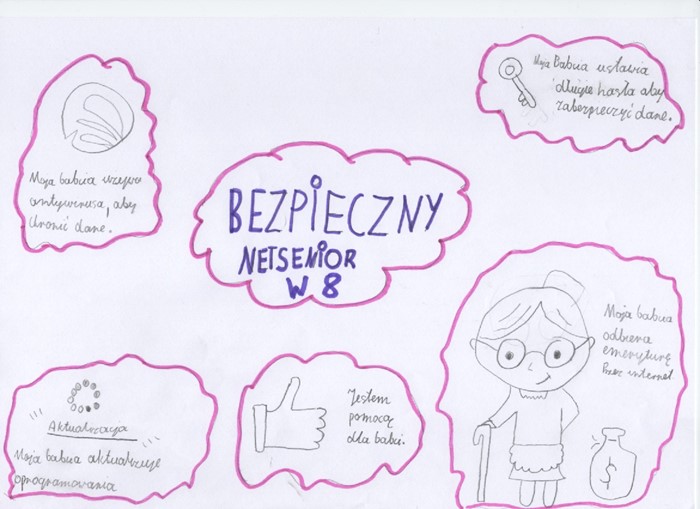 Moja Babcia ustawia
długie hasła aby
zabezpieczyć dane.
Moja babcia używa
antywirusa, aby
chronić dane.
BEZPIECZNY
NETSENIOR
W 8
Moja babcia
odbiera
emeryturę
Przez internet
$
"Aktualizacja"
Moja babcia aktualizuje
oprogramowania
Jestem
pomocą
dla babci.